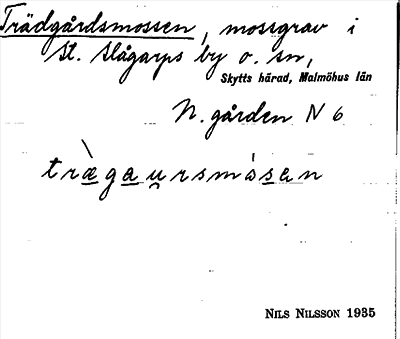 Trädgårdsmossen, mossgrav i
St. Slågarps by o. sn,
Skytts härad, Malmöhus län
N. gården N 6
træ̀gau̯rsmósan
NILS NILSSON 1935